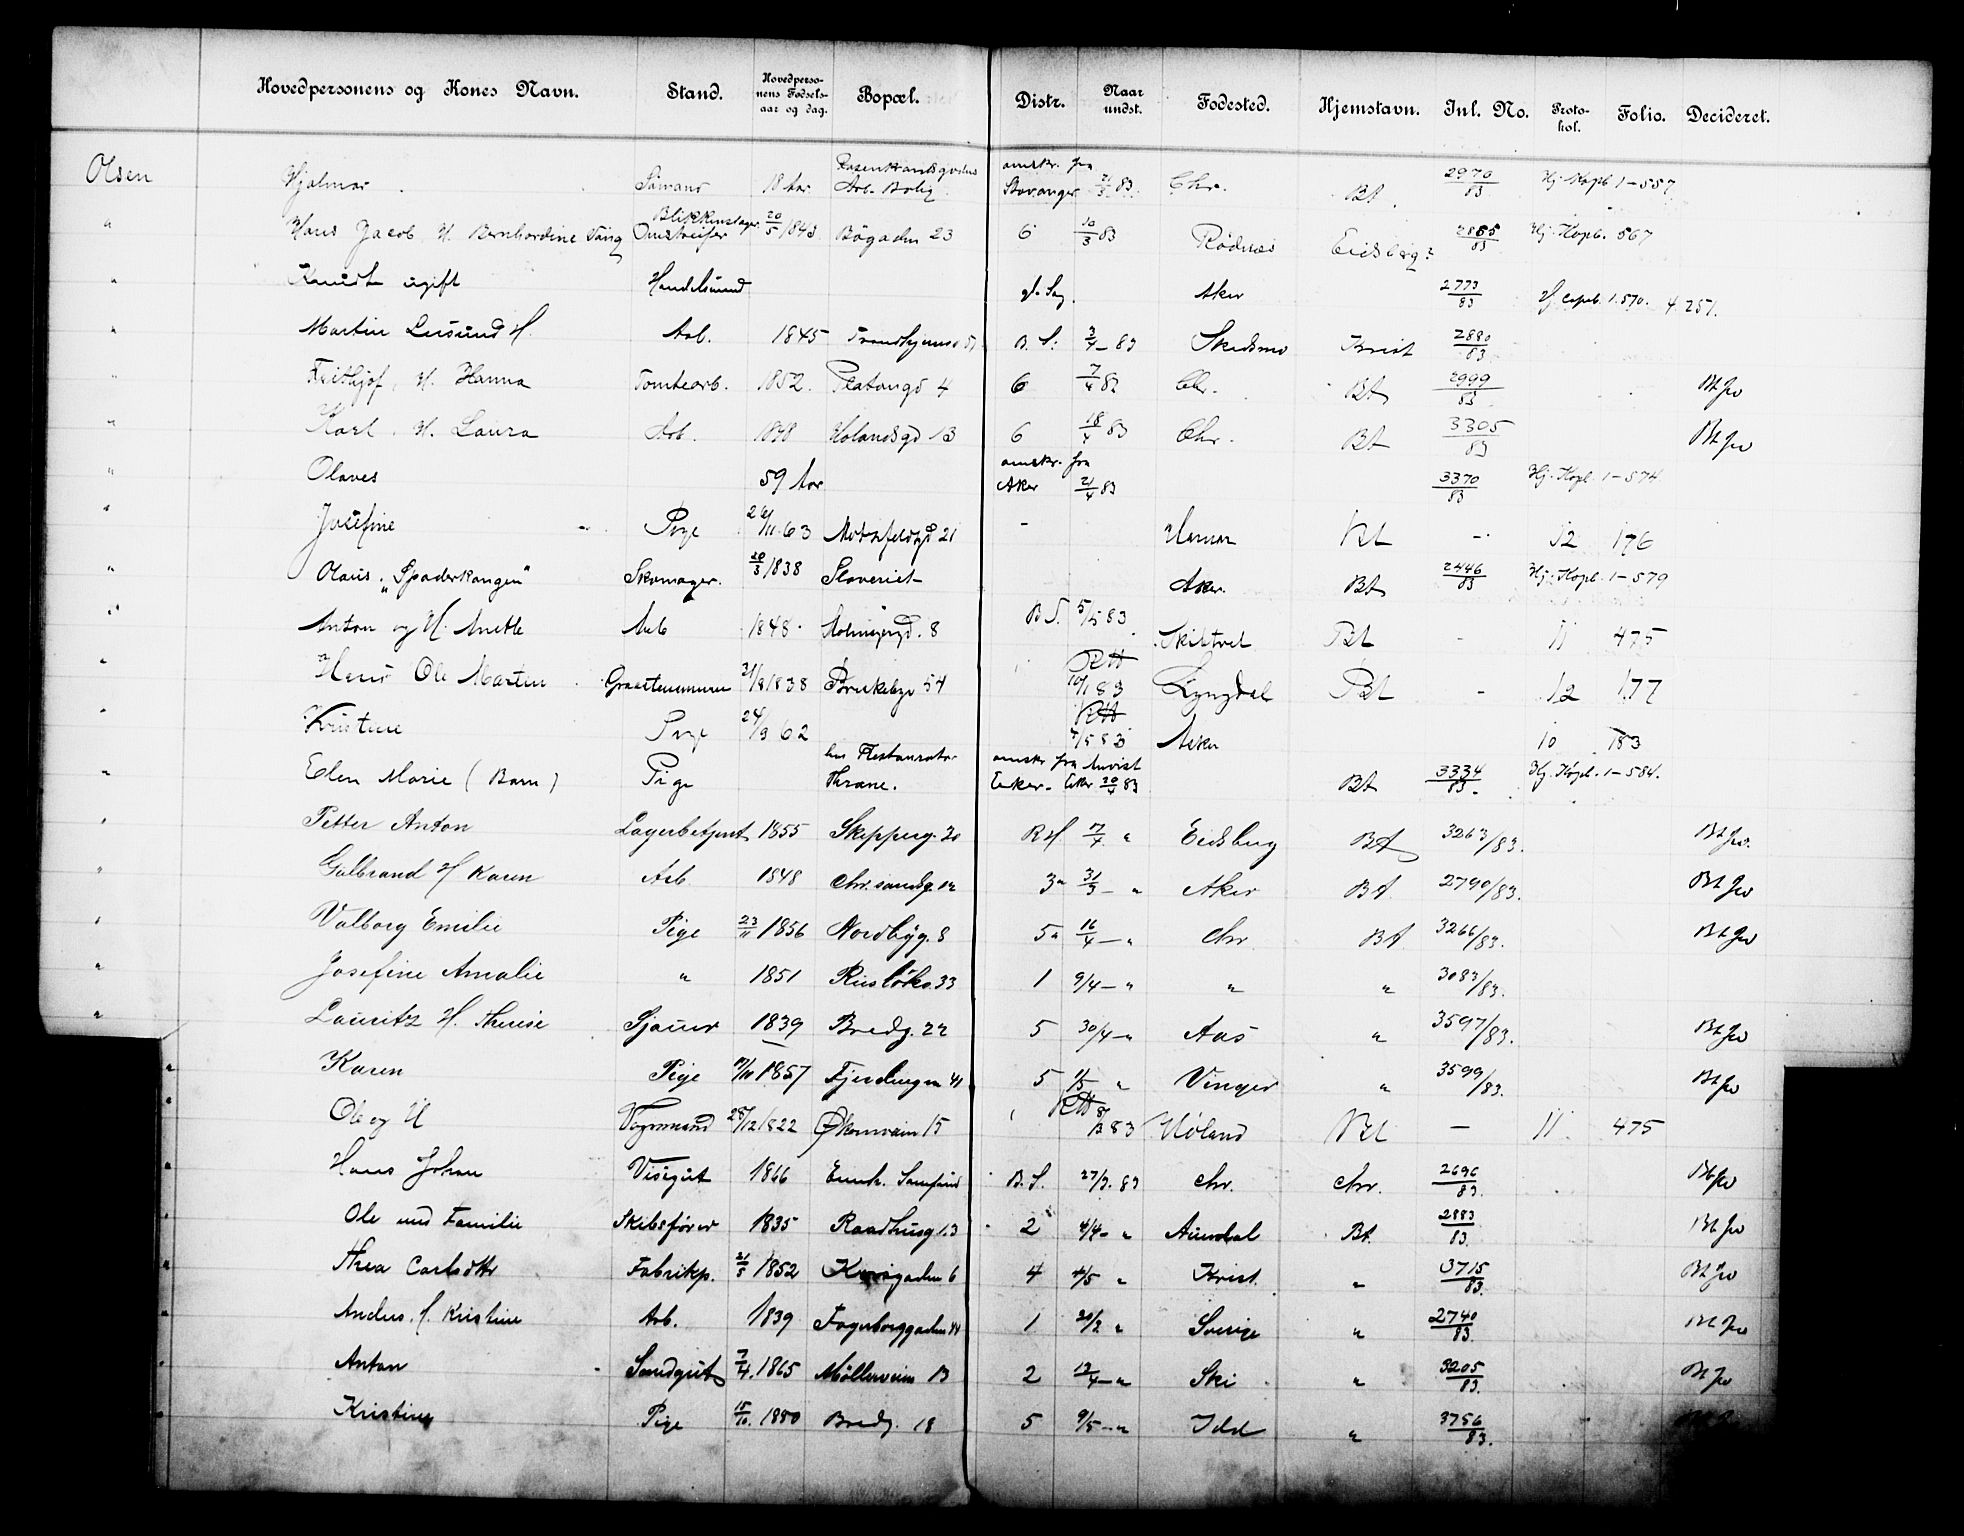 Hovedpersonens og Kones Navn. Stand. Hovedpersonens Fødselsaar og dag. Bopæl. Distr. Naar undst. Fødested. Hjemstavn. Inl. No. Protokol. Folio. Decideret.
Olsen Hjalmar Sømand 18 Aar Arb. Bolig omskr. fra Stavanger 21/3 83. Chr. Bt. 2970/83 Hj. Kopb. 1-557
" Hans Jacob, H. Bernhardine Blikkenslager 20/5 1843 Bøgaden 23 6 10/3 83 Rødnes Eidsberg? 2865/83 Hj. Kopb. 567
" Knudt ugift Handelsmand Aker 2773/83 Hj. Copb. 1.570. 4.257.
" Martin H. Arb. 1845 B. S. 3/4 - 83 Skedsmo Krist 2880/83
" Frithjof, H. Hanna Tomtearb. 1852. Platousgd 4 6 7/4 83 Chr. Bt 2999/83 Bt Jv
" Karl. H. Laura Arb. Holandsgd 13 6 18/4 83 Chr. Bt 3305/83 Bt Jv
" Olaves 59 Aar omskr. fra Aker 21/4 83 3370/83 Hj. Kopb. 1-574
" Josefine Pige 63 Motzfeldsgd 21 - Bt - 12 176
" Olaus "Spaderkongen" Skomager. 20/3 1838 Slaveriet Aker. Bt 2446/83 Hj. Kopb. 1-579
" Anton og H. Anette Arb 1848. 8 B S. 5/5 83 Bt - 11 475
" Hans Ole Martin 1838 54 10/1 83 Lyngdal Bt - 12 177
" Kristine Pige 24/9 62 83 Asker 10 183
" Elen Marie (Barn) Pige hos Restauratør Thrane. omskr. fra Eker. 83 Bt 3334/83. Hj. Kopb. 1-584.
" Petter Anton Lagerbetjent 1855 Skipperg. 20 17/4 " Eidsberg Bt 3263/83. Bt Jv.
" Gulbrand H Karen Arb 1848 Chr.sandsg. 12 3 31/3 - " Aker Bt 2790/83. Bt Jv
" Valborg Emilie Pige 23/11 1856 Nordbyg. 8 5 16/4 - " Chr Bt 3266/83. Bt Jv
" Josefine Amalie " 1851 Ruseløkv. 33 1 9/4 - " " " 3083/83.
" Lauritz H. Therese Sjauer 1839 Bredg. 22 5 30/4 - " Aas " 3597/83. Bt Jv
" Karen Pige 1857 Fjerdingen 41 5 " Vinger " 3599/83. Bt Jv
" Ole og H Vognmand 28/12 1822 Økernveien 15 83 Høland Bt - 11 475
" Hans Johan Visergut 1866 B. S. 27/3. 83 Chr. Chr. 2696/83. Bt Jv
" Ole med Familie Skibsfører 1835 Raadhusg 13 2 4/4 - " Arendal Bt. 2883/83. Bt Jv
" Thea Carlsdtr Fabrikp. 21/5 1852 6 4 4/5 " Krist. " 3715/83. Bt Jv
" Anders. H. Kristine Arb. 1839 Fagerborggaden 44 1 " Sverige " 2740/83. Bt Jv
" Anton 7/4. 1865 Møllerveien 13 2 13/4 - " Ski " 3205/83. Bt Jv
" Kristine Pige 15/10. 1850 Bredg. 18 5 9/5 - " Idd " 3756/83.